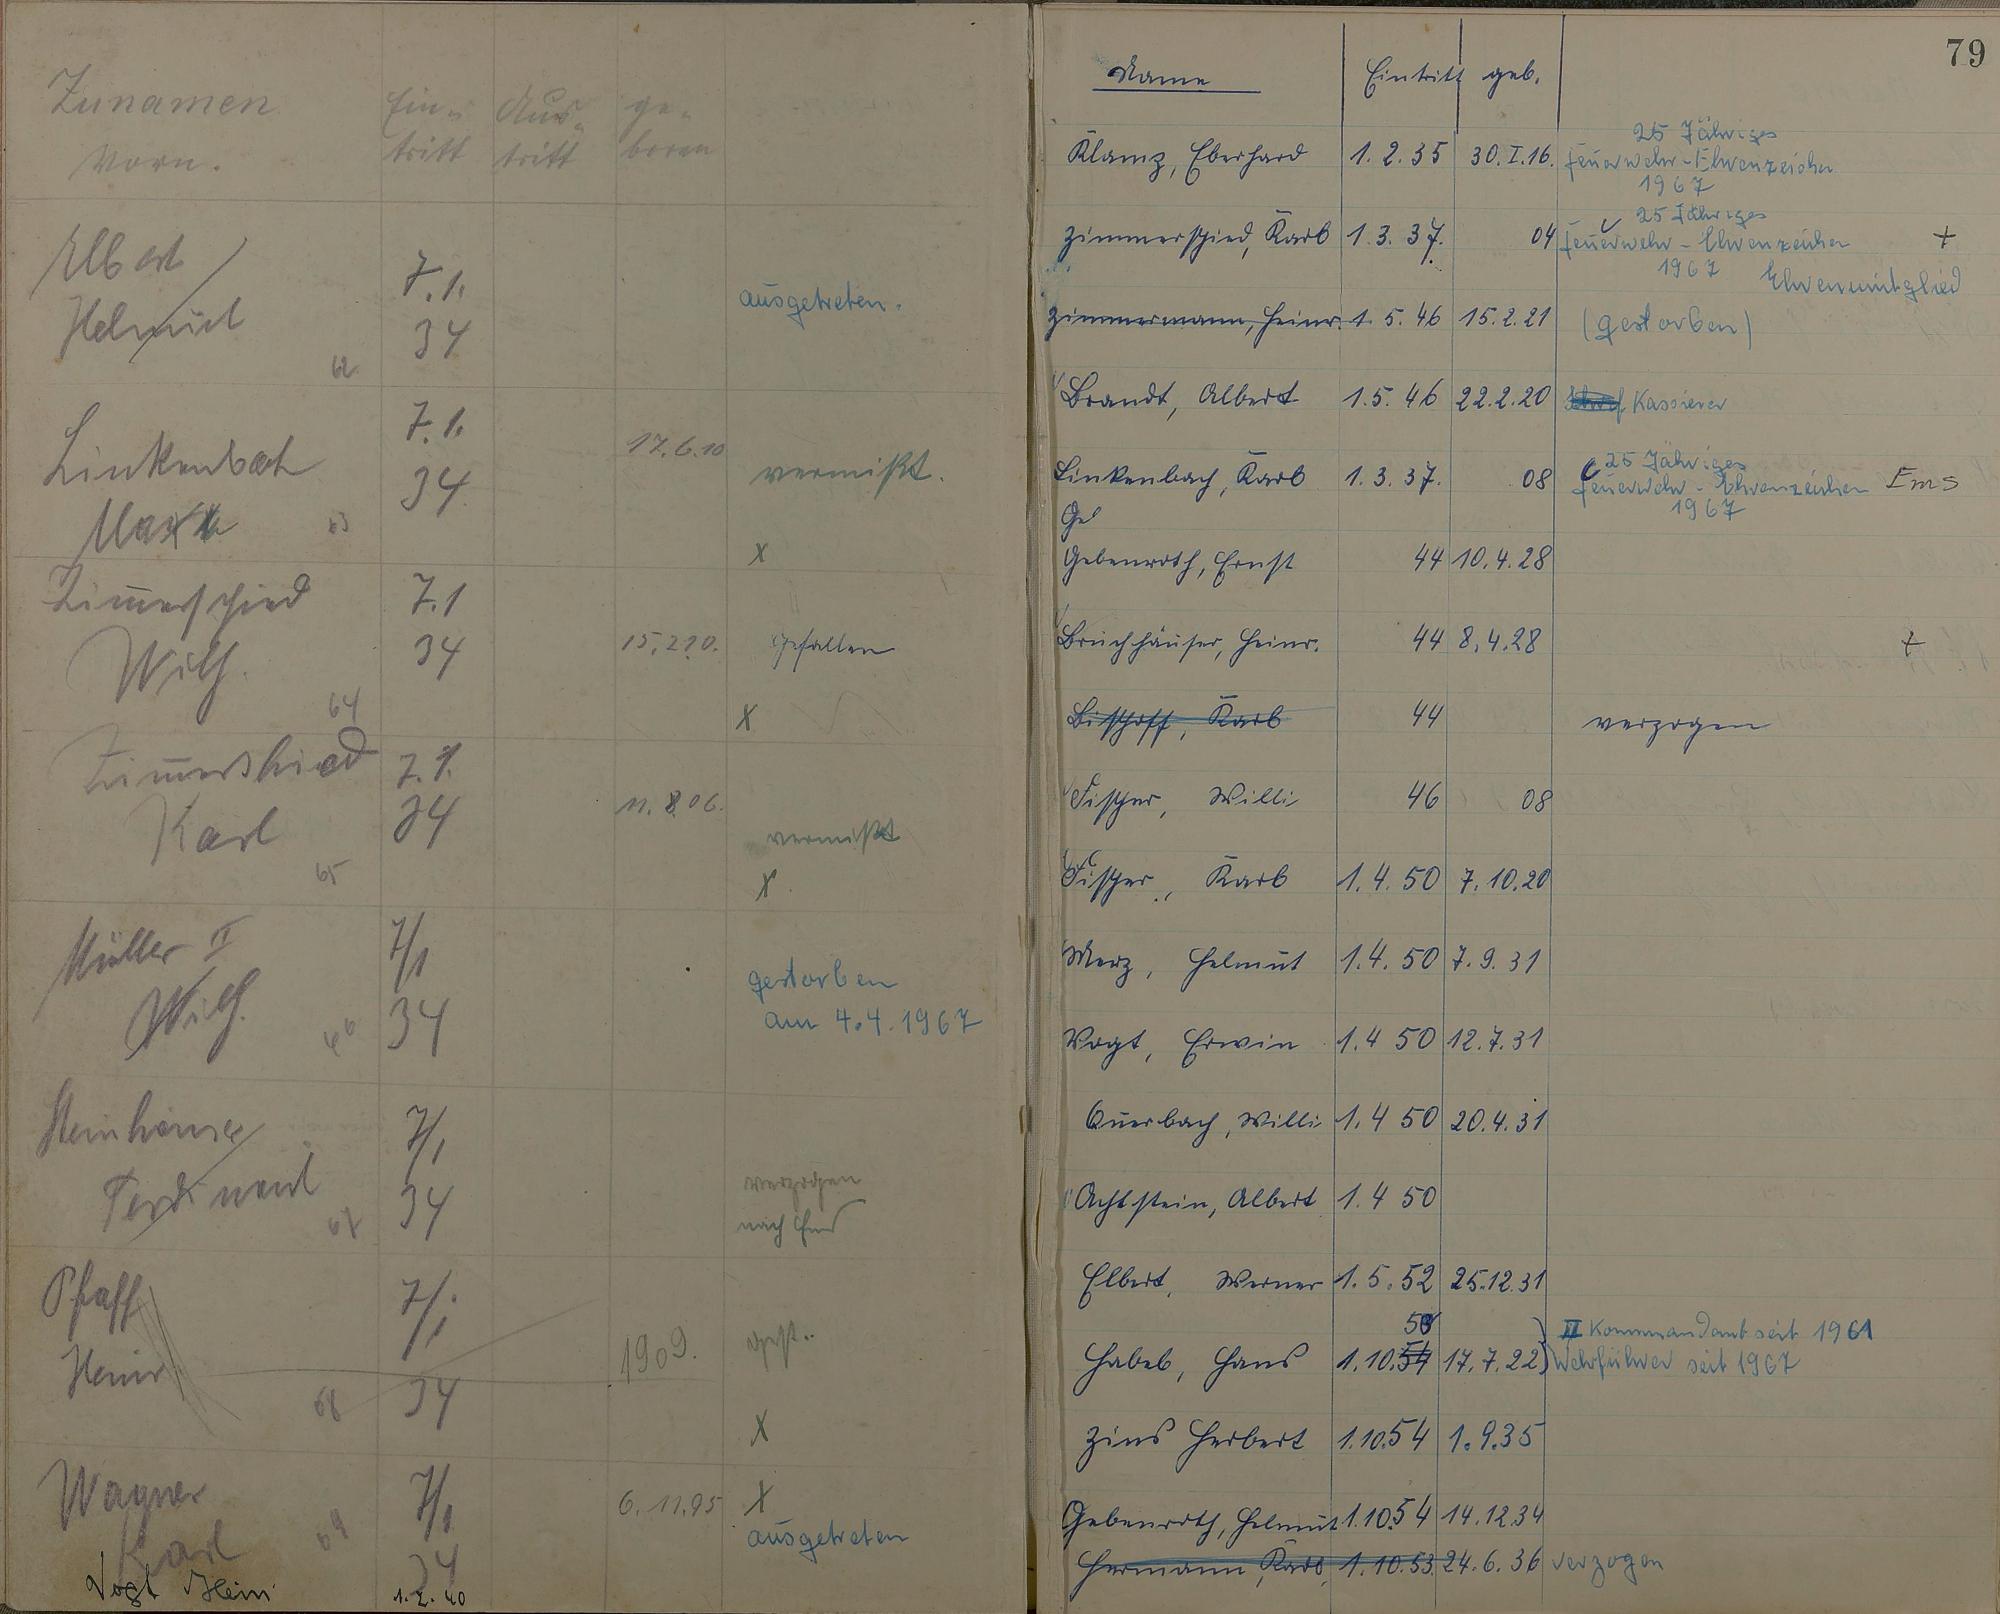 Zunamen
Vorn.
Ein-
tritt
Aus-
tritt
ge-
boren
Elbert
Helmut
62
7.1.
34
ausgetreten.
Linkenbach
Max
63
7.1.
34
17.6.10
vermißt.
x
Zim̄erschied
Wilh.
64
7.1
34
gefallen
x
Zim̄erschied
Karl
65
7.1.
34
11.8.06.
vermißt
x
Müller II
Wilh.
66
7/1
34
gestorben
am 4.4.1967
Ferdinand
67
7/1
34
verzogen
nach Ems
Pfaff
Heinr.
68
7/1
34
1909.
gest..
x
Wagner
Karl
69
7/1
34
6.11.95
x
ausgetreten
Vogt Hein
1.2.40
79
Name Eintritt geb.
25 Jähriges
Klamz, Eberhard 1.2.35 30.I.16. Feuerwehr-Ehrenzeichen
1967
25 Jähriges
Zimmerschied, Karl 1.3.37. 04 Feuerwehr-Ehrenzeichen +
1967 Ehrenmitglied
Zimmermann, Heinr. 1.5.46 15.2.21 (gestorben)
Brandt, Albert 1.5.46 22.2.20 Kassierer
25 Jähriges
Linkenbach, Karl 1.3.37. 08 Feuerwehr-Ehrenzeichen Ems
1967
Ge
Gebenroth, Ernst 44 10.4.28
Bruchhäuser, Heinr. 44 8.4.28 +
Bischoff, Karl 44 verzogen
Fischer, Willi 46 08
Fischer, Karl 1.4.50 7.10.20
Merz, Helmut 1.4.50 7.9.31
Vogt, Erwin 1.4 50 12.7.31
Querbach, Willi 1.4 50 20.4.31
Achtstein, Albert 1.4 50
Elbert, Werner 1.5.52 25.12.31
II Kommandant seit 1961
Habel, Hans 1.10.54 17.7.22 Wehrführer seit 1967
Zins Herbert 1.10.54 1.9.35
Gebenroth, Helmut 1.10.54 14.12.34
Hermann, Karl, 1.10.53. 24.6.36 verzogen